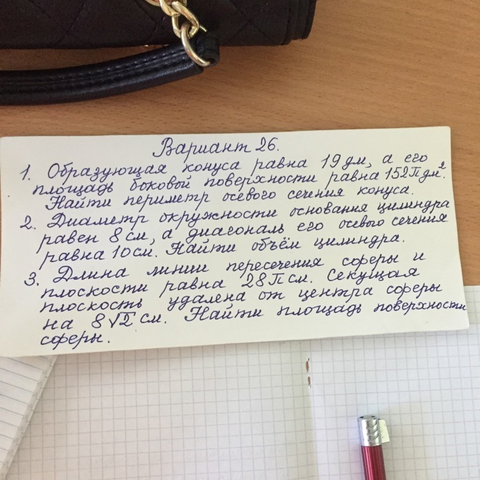 Вариант 26.
1. Образующая конуса равна 19 дм, а его
площадь боковой поверхности равна 152π дм².
Найти периметр осевого сечения конуса.
2. Диаметр окружности основания цилиндра
равен 8 см, а диагональ его осевого сечения
равна 10 см. Найти объём цилиндра.
3. Длина линии пересечения сферы и
плоскости равна 28π см. Секущая
плоскость удалена от центра сферы
на 8√2 см. Найти площадь поверхности
сферы.